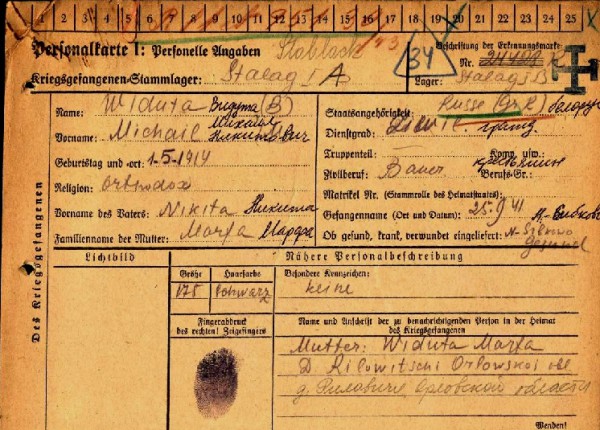 1 2 3 4 5 6 7 8 9 10 11 12 13 14 15 16 17 18 19 20 21 22 23 24 25
Personalkarte I: Personelle Angaben Stablack
Kriegsgefangenen-Stammlager: Stalag I A
34
Beschriftung der Erkennungsmarke
Nr.
Lager: Stalag I B
Des Kriegsgefangenen
Name: Widuta Видута (В)
Vorname: Michail Михаил Никитович
Geburtstag und -ort: 1.5.1914
Religion: Orthodox
Vorname des Vaters: Nikita Никита
Familienname der Mutter: Marfa Марфа
Staatsangehörigkeit: Russe
Dienstgrad:
Truppenteil: Komp. usw.:
Zivilberuf: Bauer Berufs-Gr.:
Matrikel Nr. (Stammrolle des Heimatstaates):
Gefangennahme (Ort und Datum): 25.9.41
Ob gesund, krank, verwundet eingeliefert: gesund
Lichtbild
Nähere Personalbeschreibung
Größe Haarfarbe Besondere Kennzeichen:
175 schwarz keine
Fingerabdruck
des rechten! Zeigefingers
Name und Anschrift der zu benachrichtigenden Person in der Heimat
des Kriegsgefangenen
Mutter: Widuta Marfa
D Rilowitschi Orlowskoi obl
д. Риловичи Орловской области
Wenden!